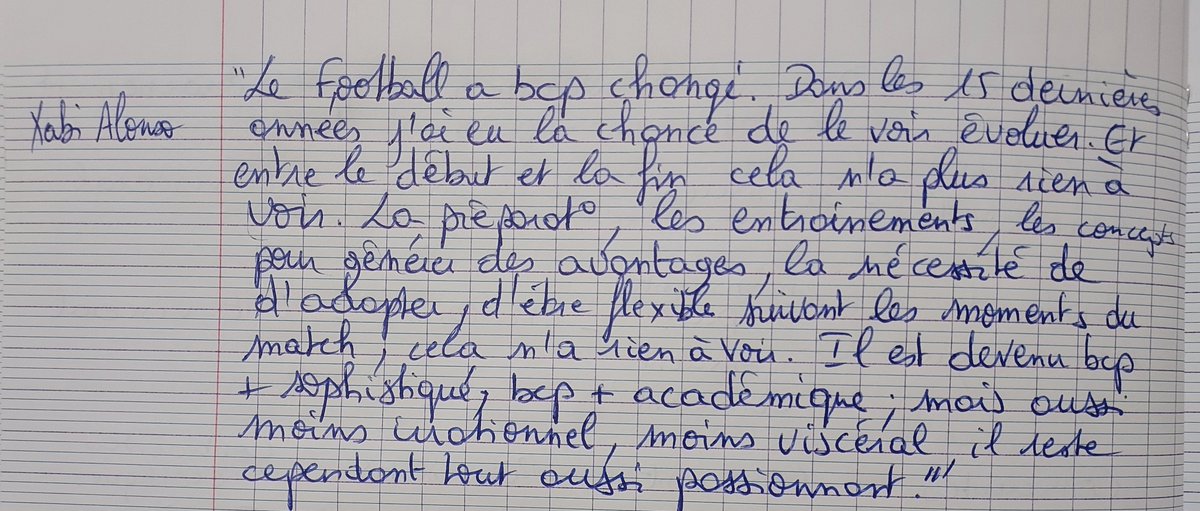 "Le Football a bcp changé. Dans les 15 dernières
Xabi Alonso
années j'ai eu la chance de le voir évoluer. Et
entre le début et la fin cela n'a plus rien à
voir. La préparat°, les entraînements, les concepts
pour générer des avantages, la nécessité de
d'adapter, d'être flexible suivant les moments du
match, cela n'a rien à voir. Il est devenu bcp
+ sophistiqué, bcp + académique ; mais aussi
moins émotionnel, moins viscéral, il reste
cependant tout aussi passionnant."